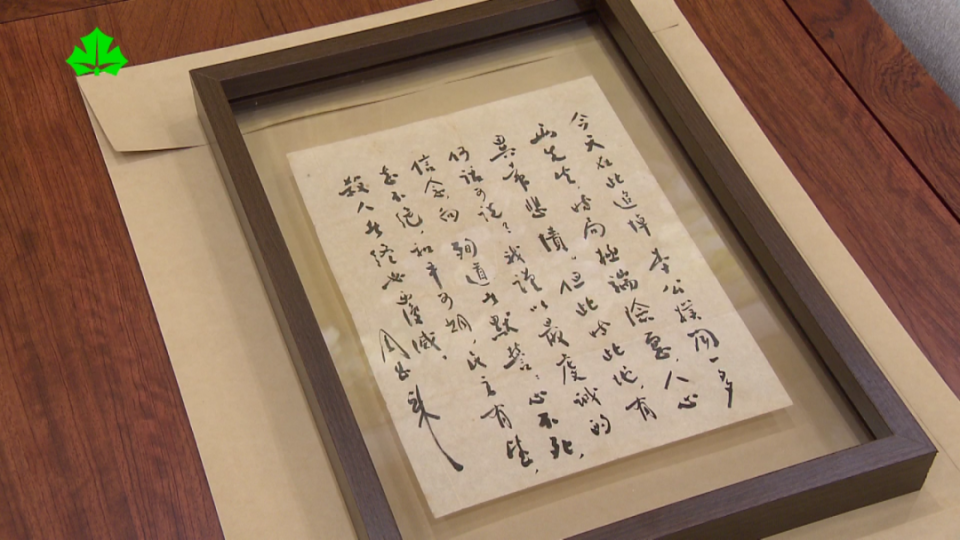 今天在此追悼李公樸闻一多
两先生，时局极端险恶，人心
異常悲憤，但此时此地，有
何话可说？我谨以最虔诚的
信念，向殉道者默誓：心不死，
志不绝，和平可期，民主有望，
殺人者终必覆滅。
周恩来